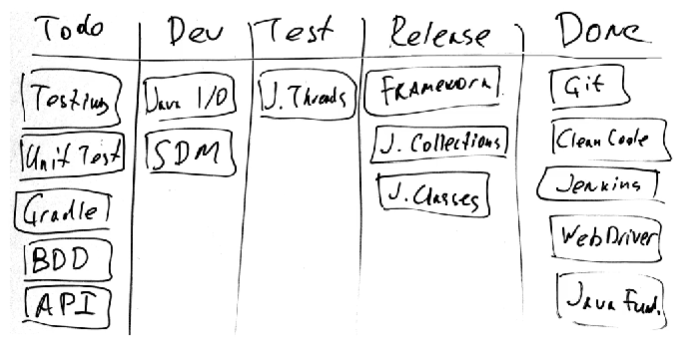 Todo Dev Test Release Done
Testing Java I/O J. Threads Framework Git
Unit Test SDM J. Collections Clean Code
Gradle J. Classes Jenkins
BDD WebDriver
API Java Fund.